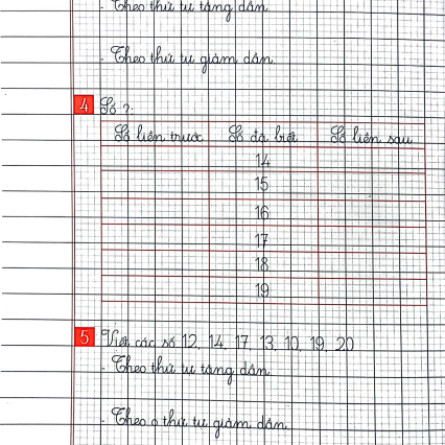 - Theo thứ tự tăng dần.
- Theo thứ tự giảm dần.
4 Số ?
Số liền trước Số đã biết Số liền sau
14
15
16
17
18
19
5 Viết các số 12, 14, 17, 13, 10, 19, 20
- Theo thứ tự tăng dần
- Theo o thứ tự giảm dần.